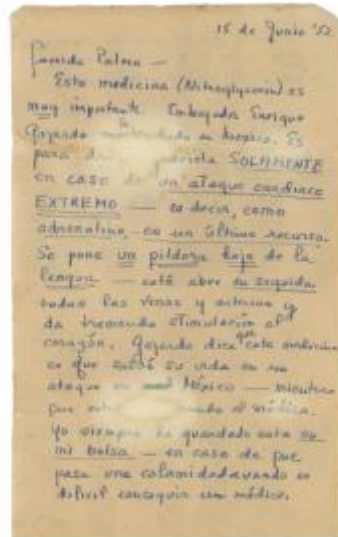 15 de Junio '52
Querida Palma —
Esta medicina (Nitroglycerin) es
muy importante. Embajada Enrique
Gajardo en Mexico. Es
para SOLAMENTE
en caso de un ataque cardiaco
EXTREMO — es decir, como
adrenalina, es un último recurso.
Se pone un pildora bajo de la
lengua — esto abre en seguida
todas las venas y arterias y
da tremenda stimulación al
corazón. Gajardo dice que esta medicina
es que salvó su vida en un
ataque en Mexico — mientras
por el médico.
Yo siempre he guardado esta en
mi bolsa — en caso de que
pasa una calamidad cuando es
dificil conseguir un médico.